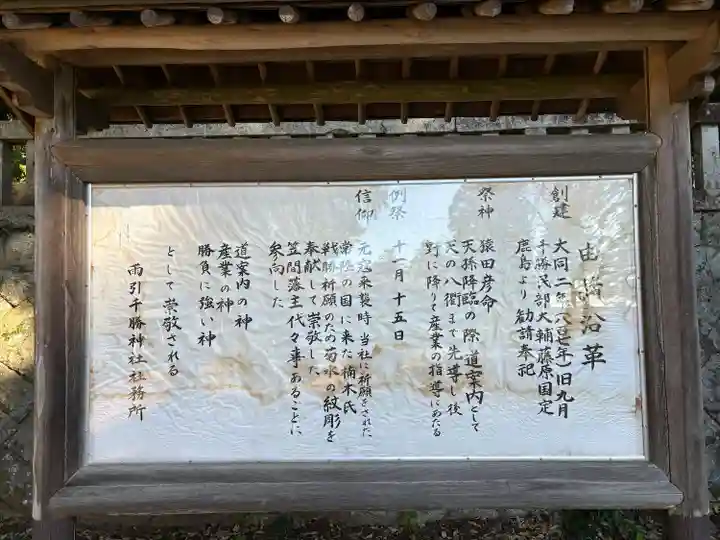 由緒沿革
創建 大同二年(八〇七年)旧九月
千勝民部大輔藤原国定
鹿島より勧請奉祀
祭神 猿田彦命
天孫降臨の際道案内として
天の八衢まで先導し後
野に降りて産業の指導にあたる
例祭 十一月十五日
信仰 元寇来襲時当社に祈願をされた
常陸の国に来た楠木氏
戦勝祈願のため菊水の紋彫を
奉献して崇敬した
笠間藩主代々事あることに
参向した
道案内の神
産業の神
勝負に強い神
として崇敬される
雨引千勝神社社務所